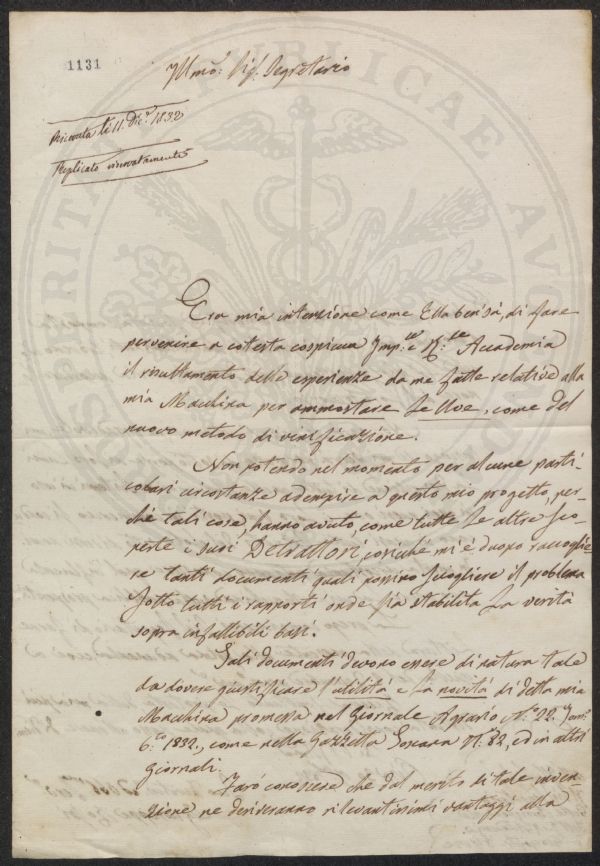 1131
Illmo: Sig. Segretario
Ricevuta li 11. Dic.e 1832
Replicato riservatamente
Era mia intenzione come Ella ben sà, di fare
pervenire a cotesta cospicua Imp.le e R.le Accademia
il risultamento delle esperienze da me fatte relative alla
mia Macchina per ammostare Le Uve, come del
nuovo metodo di vinificazione.
Non potendo nel momento per alcune parti-
colari circostanze adempire a questo mio progetto, per-
chè tali cose, hanno avuto, come tutte Le altre sco-
perte i suoi Detrattori, cosichè mi è d'uopo raccoglie-
re tanti documenti quali possino sciogliere il problema
sotto tutti i rapporti onde sia stabilita La verità
sopra infallibili basi.
Tali documenti devono essere di natura tale
da dovere giustificare l'utilità e la novità di detta mia
Macchina promessa nel Giornale Agrario N.o 22.
6.o 1832., come nella Gazzetta Toscana N.o 82, ed in altri
giornali.
Farò conoscere che dal merito di tale inven-
zione ne deriveranno rilevantissimi vantaggi alla
PUBLICAE